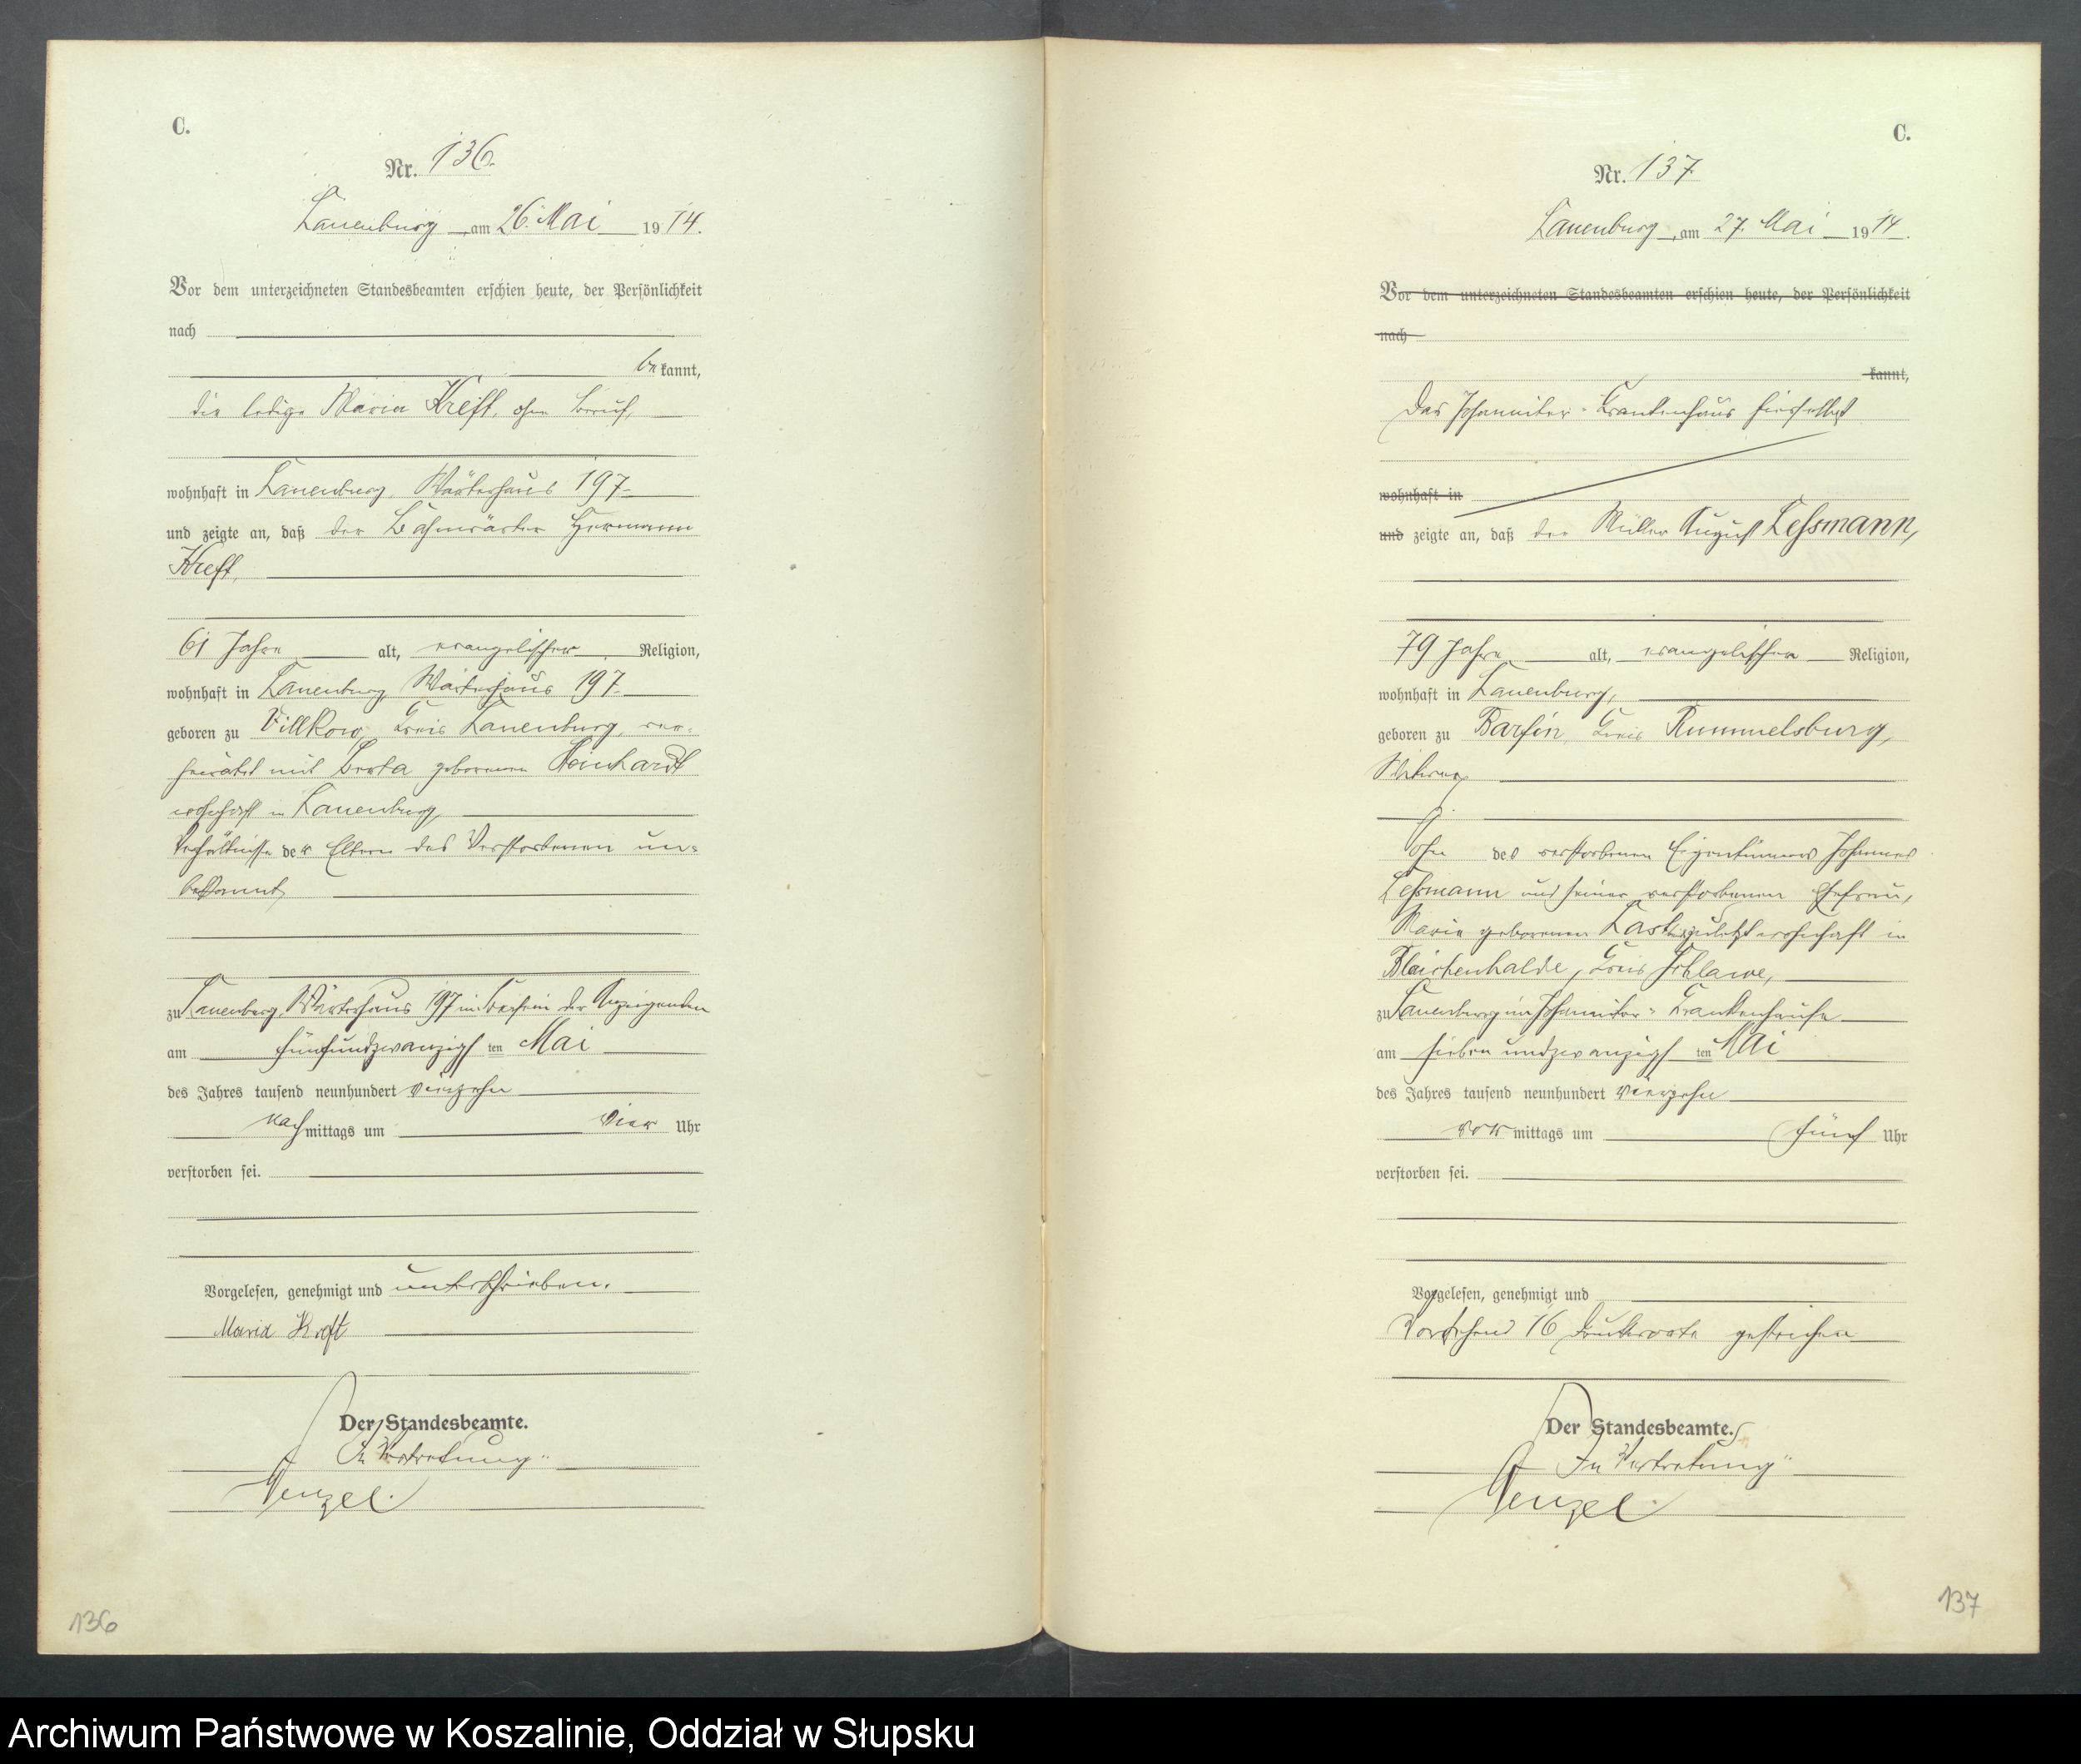 C.
Nr. 136.
Lauenburg, am 26. Mai 1914.
Vor dem unterzeichneten Standesbeamten erschien heute, der Persönlichkeit
nach
bekannt,
die ledige Maria Kreft, ohne Beruf,
wohnhaft in Lauenburg, Wärterhaus 197
und zeigte an, daß der Bahnwärter Hermann
Kreft,
61 Jahre alt, evangelischer Religion,
wohnhaft in Lauenburg Wärterhaus 197
geboren zu Villkow, Kreis Lauenburg, ver-
heiratet mit Berta geborenen Reinhardt
wohnhaft in Lauenburg,
Verhältnisse der Eltern des Verstorbenen un-
bekannt,
zu Lauenburg, Wärterhaus 197 im Beisein der Anzeigenden
am fünfundzwanzigsten Mai
des Jahres tausend neunhundert vierzehn
nachmittags um vier Uhr
verstorben sei.
Vorgelesen, genehmigt und unterschrieben.
Maria Kreft
Der Standesbeamte.
In Vertretung
Wenzel.
136
C.
Nr. 137
Lauenburg, am 27. Mai 1914.
Vor dem unterzeichneten Standesbeamten erschien heute, der Persönlichkeit
nach
kannt,
Das Johanniter-Krankenhaus hierselbst
wohnhaft in
und zeigte an, daß der Müller August Lessmann,
79 Jahre alt, evangelischer Religion,
wohnhaft in Lauenburg,
geboren zu Barfin, Kreis Rummelsburg,
Witwer,
Sohn des verstorbenen Eigentümers Johannes
Lessmann und seiner verstorbenen Ehefrau,
Marie geborenen zuletzt wohnhaft in
Kreis Schlawe,
zu Lauenburg im Johanniter-Krankenhause
am siebenundzwanzigsten Mai
des Jahres tausend neunhundert vierzehn
vormittags um fünf Uhr
verstorben sei.
Vorgelesen, genehmigt und
Vorstehend 16 Druckworte gestrichen
Der Standesbeamte.
In Vertretung
Wenzel.
137
Archiwum Państwowe w Koszalinie, Oddział w Słupsku